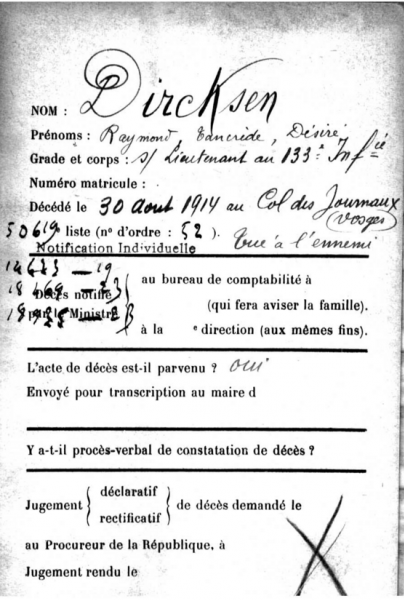 NOM : Dircksen
Prénoms : Raymond, Tancrède, Désiré
Grade et corps : s/ Lieutenant au 133e Inf ie
Numéro matricule :
Décédé le 30 Aout 1914 au Col des Journaux
(Vosges)
50619 liste (n° d'ordre : 52 ). Tué à l'ennemi
Notification Individuelle
au bureau de comptabilité à
Décès notifié
(qui fera aviser la famille).
par le Ministre
à la e direction (aux mêmes fins).
L'acte de décès est-il parvenu ? oui
Envoyé pour transcription au maire d
Y a-t-il procès-verbal de constatation de décès ?
déclaratif
Jugement de décès demandé le
rectificatif
au Procureur de la République, à
Jugement rendu le